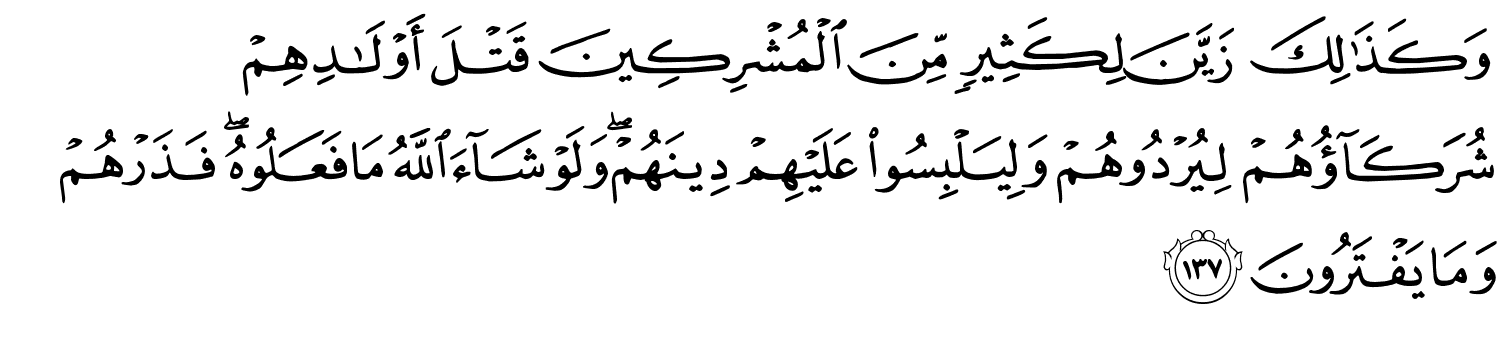 وَكَذَٰلِكَ زَيَّنَ لِكَثِيرٍ مِّنَ ٱلْمُشْرِكِينَ قَتْلَ أَوْلَٰدِهِمْ
شُرَكَآؤُهُمْ لِيُرْدُوهُمْ وَلِيَلْبِسُوا۟ عَلَيْهِمْ دِينَهُمْ ۖ وَلَوْ شَآءَ ٱللَّهُ مَا فَعَلُوهُ ۖ فَذَرْهُمْ
وَمَا يَفْتَرُونَ ١٣٧